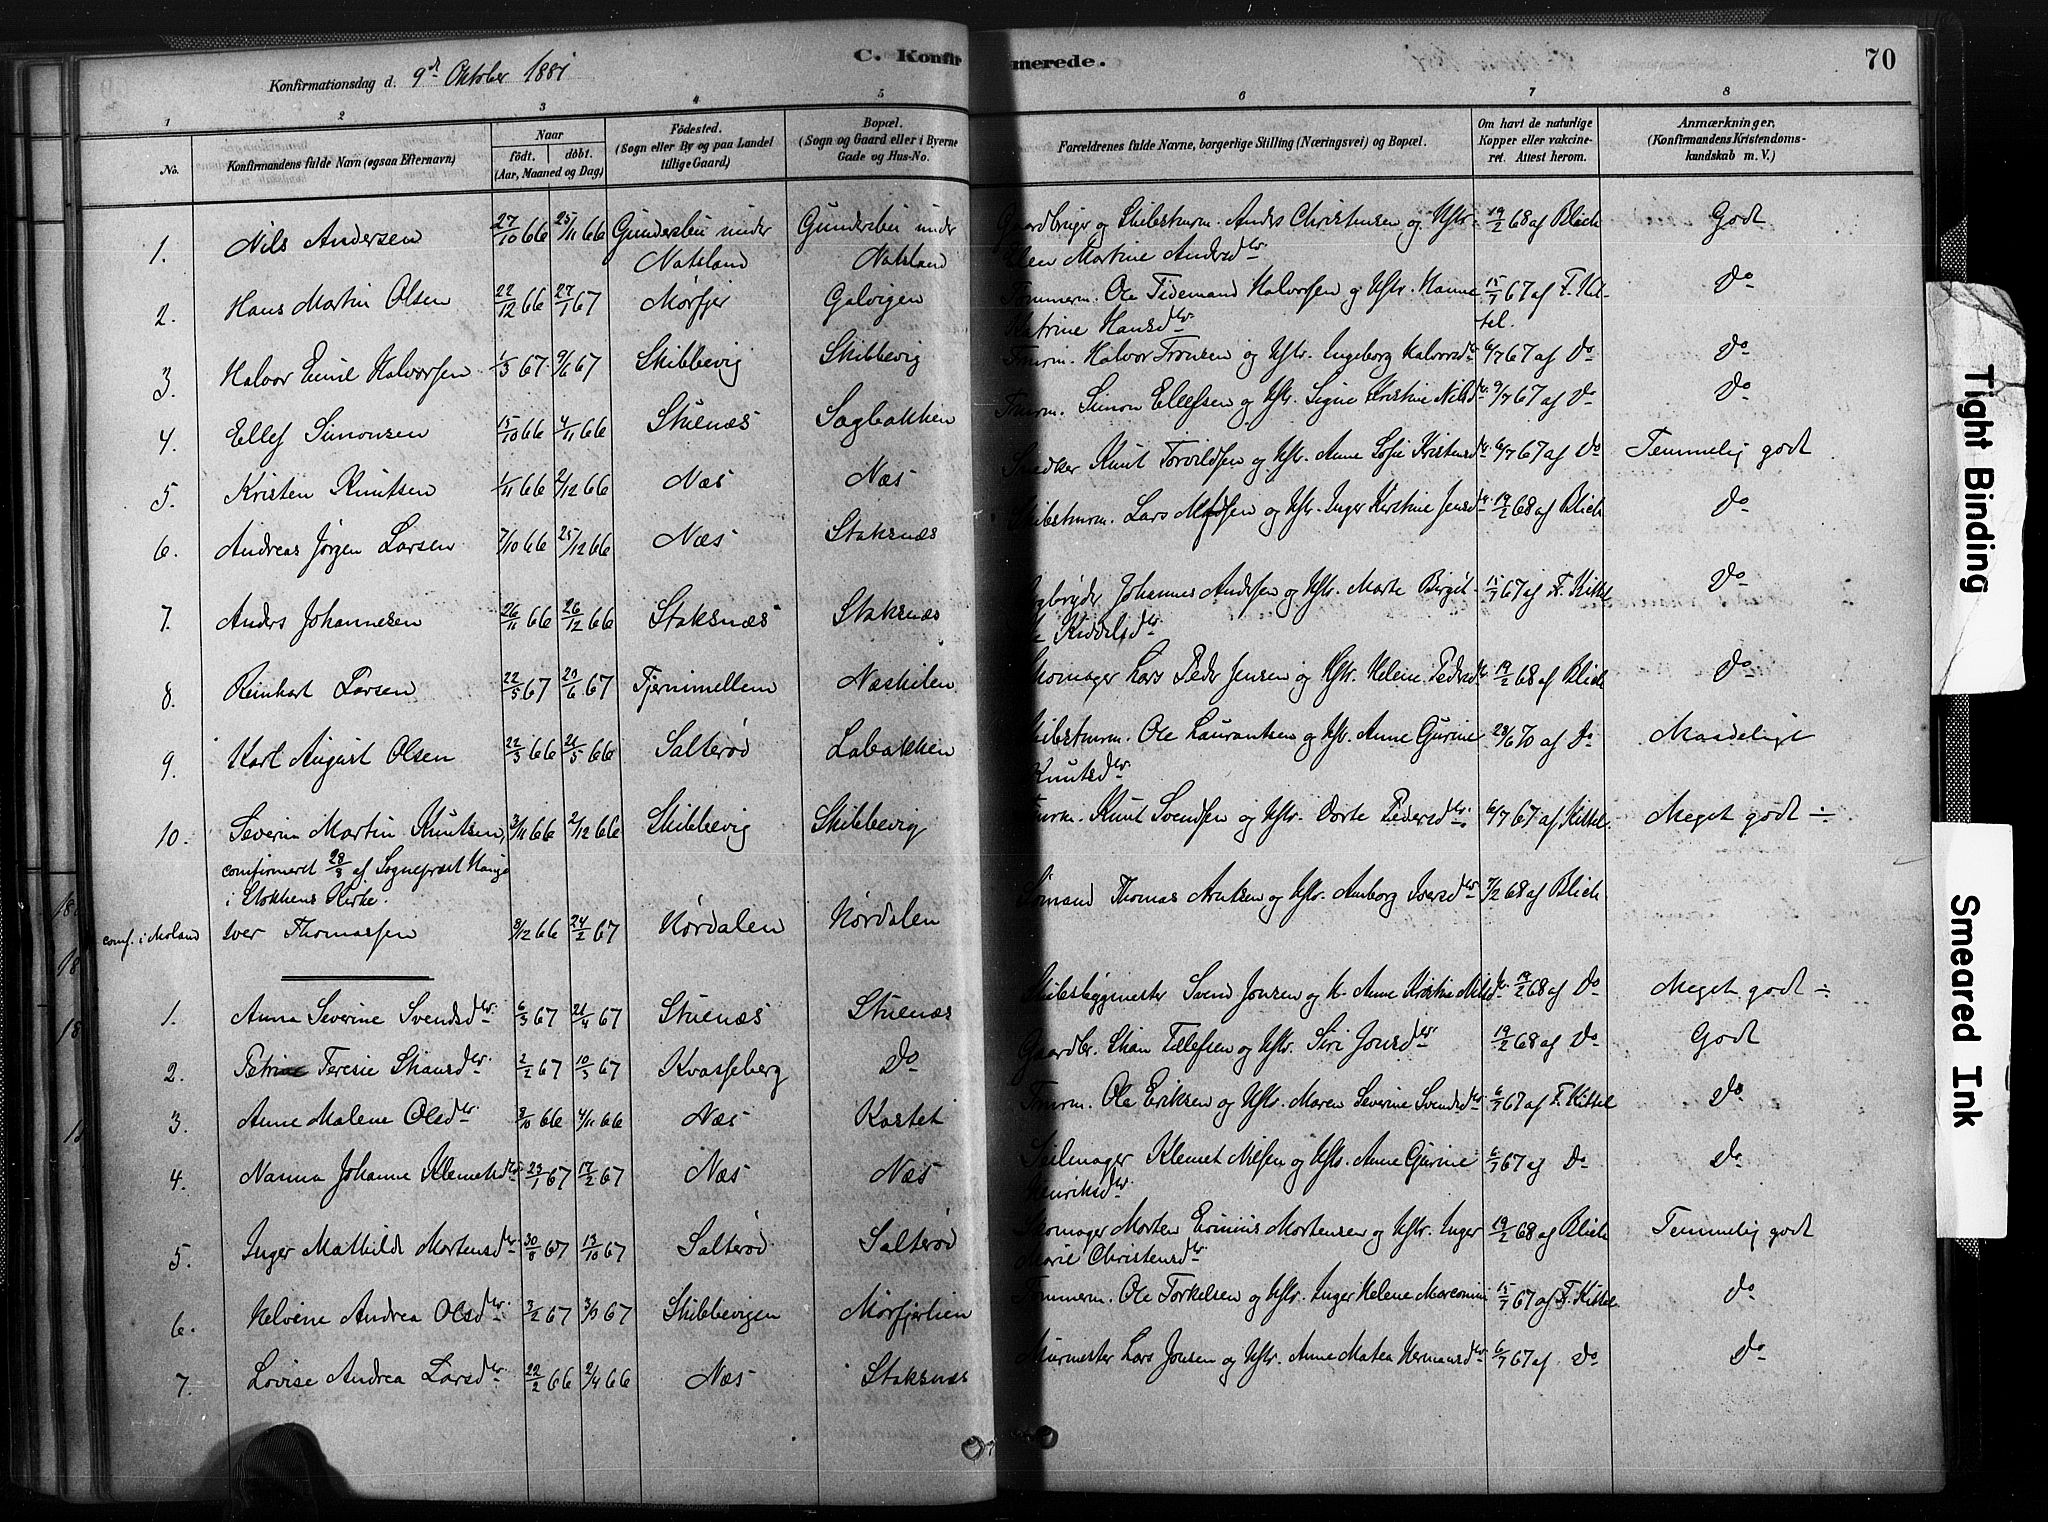 C. Konfirmerede.
70
Konfirmationsdag d. 9de Oktober 1881
1 2 3 4 5 6 7 8
No. Konfirmandens fulde Navn (ogsaa Efternavn) Naar födt. döbt. (Aar, Maaned og Dag) Födested. (Sogn eller By og paa Landet tillige Gaard) Bopæl. (Sogn og Gaard eller i Byerne Gade og Hus-No. Forældrenes fulde Navne, borgerlige Stilling (Næringsvei) og Bopæl. Om havt de naturlige Kopper eller vakcineret. Attest herom. Anmærkninger. (Konfirmandens Kristendomskundskab m. V.)
1. Nils Andersen 27/10 66 25/11 66 Gundersbu under Natsland Gundersbu under Natsland Gaardbruger og Skibstmrm. Anders Christensen og Hstr. Elen Martine Andersdtr 19/2 68 af Blich Godt
2. Hans Martin Olsen 22/12 66 27/1 67 Mørfjer Galvigen Tømmerm. Ole Tidemand Halvorsen og Hstr. Hanne Katrine Hansdtr 15/7 67 af F. Kittel. Do
3. Halvor Emil Halvorsen 1/3 67 9/6 67 Skibbevig Skibbevig Tmrm. Halvor Tronsen og Hstr. Ingeborg Halvorsdtr 6/7 67 af Do Do
4. Ellef Simonsen 15/10 66 4/11 66 Stuenæs Sagbakken Tmrm. Simon Ellefsen og Hstr. Signe Kristine Nilsdtr 9/7 67 af Do Do
5. Kristen Knutsen 1/11 66 2/12 66 Næs Næs Snedker Knut Torvildsen og Hstr. Anne Sofie Kristensdtr 6/7 67 af Do Temmelig godt
6. Andreas Jørgen Larsen 7/10 66 25/12 66 Næs Staksnæs Skibstmrm. Lars og Hstr. Inger Kirstine Jensdtr 19/2 68 af Blich Do
7. Anders Johannesen 26/11 66 26/12 66 Staksnæs Staksnæs Johannes Andersen og Hstr. Marte Birgitte Kiddelsdtr 15/7 67 af F. Kittel Do
8. Reinhart Larsen 22/5 67 20/6 67 Fjernimellem Næskilen Skomager Lars Peder Jensen og Hstr. Helene Pedersdtr 19/2 68 af Blich Do
9. Karl August Olsen 22/3 66 21/5 66 Salterød Labakken Skibstmrm. Ole Laurantsen og Hstr. Anne Gurine Knutsdtr 28/6 70 af Do Maadeligt
10. Severin Martin Knutsen, 3/11 66 2/12 66 Skibbevig Skibbevig Tmrm. Knut Svendsen og Hstr. Dorte Pedersdtr. 6/7 67 af Kittel. Meget godt ÷
comfirmeret 28/8 af Sognepræst Hauge
i Stokkens Kirke.
comf. i Moland Iver Thomassen 9/12 66 24/2 67 Nørdalen Nørdalen Sømand Thomas Knutsen og Hstr. Amborg Iversdtr 7/2 68 af Blich
1. Anna Severine Svendsdtr 6/3 67 21/4 67 Stuenæs Stuenæs Skibsbyggmester Svend Jonsen og H. Anne Kristine Nilsdtr 19/2 68 af Do Meget godt ÷
2. Petrine Teresie Stiansdtr 2/2 67 10/3 67 Kvasseberg Do Gaardbr. Stian Tellefsen og Hstr. Siri Jonsdtr 19/2 68 af Do Godt
3. Anne Malene Olsdtr. 8/10 66 4/11 66 Næs Kastet Tmrm. Ole Eriksen og Hstr. Maren Severine Svendsdtr 6/7 67 af F. Kittel Do
4. Nanna Johanne Klemetsdtr 23/1 67 17/2 67 Næs Næs Seilmager Klemet Nilsen og Hstr. Anne Gurine Henriksdtr 6/7 67 af Do Do
5. Inger Mathilde Mortensdtr 30/8 67 13/10 67 Salterød Salterød Skomager Morten Mortensen og Hstr. Inger Marie Christensdtr 19/2 68 af Blich Temmelig godt
6. Helvine Andrea Olsdtr. 3/2 67 67 Skibbevigen Mørfjærlien Tømmerm. Ole Torkelsen og Hstr. Inger Helene 15/7 67 af F. Kittel Do
7. Lovise Andrea Larsdtr 22/2 66 2/4 66 Næs Staksnæs Murmester Lars Jonsen og Hstr. Anne Matea Hermansdtr 6/7 67 af Do Do
Tight Binding
Smeared Ink